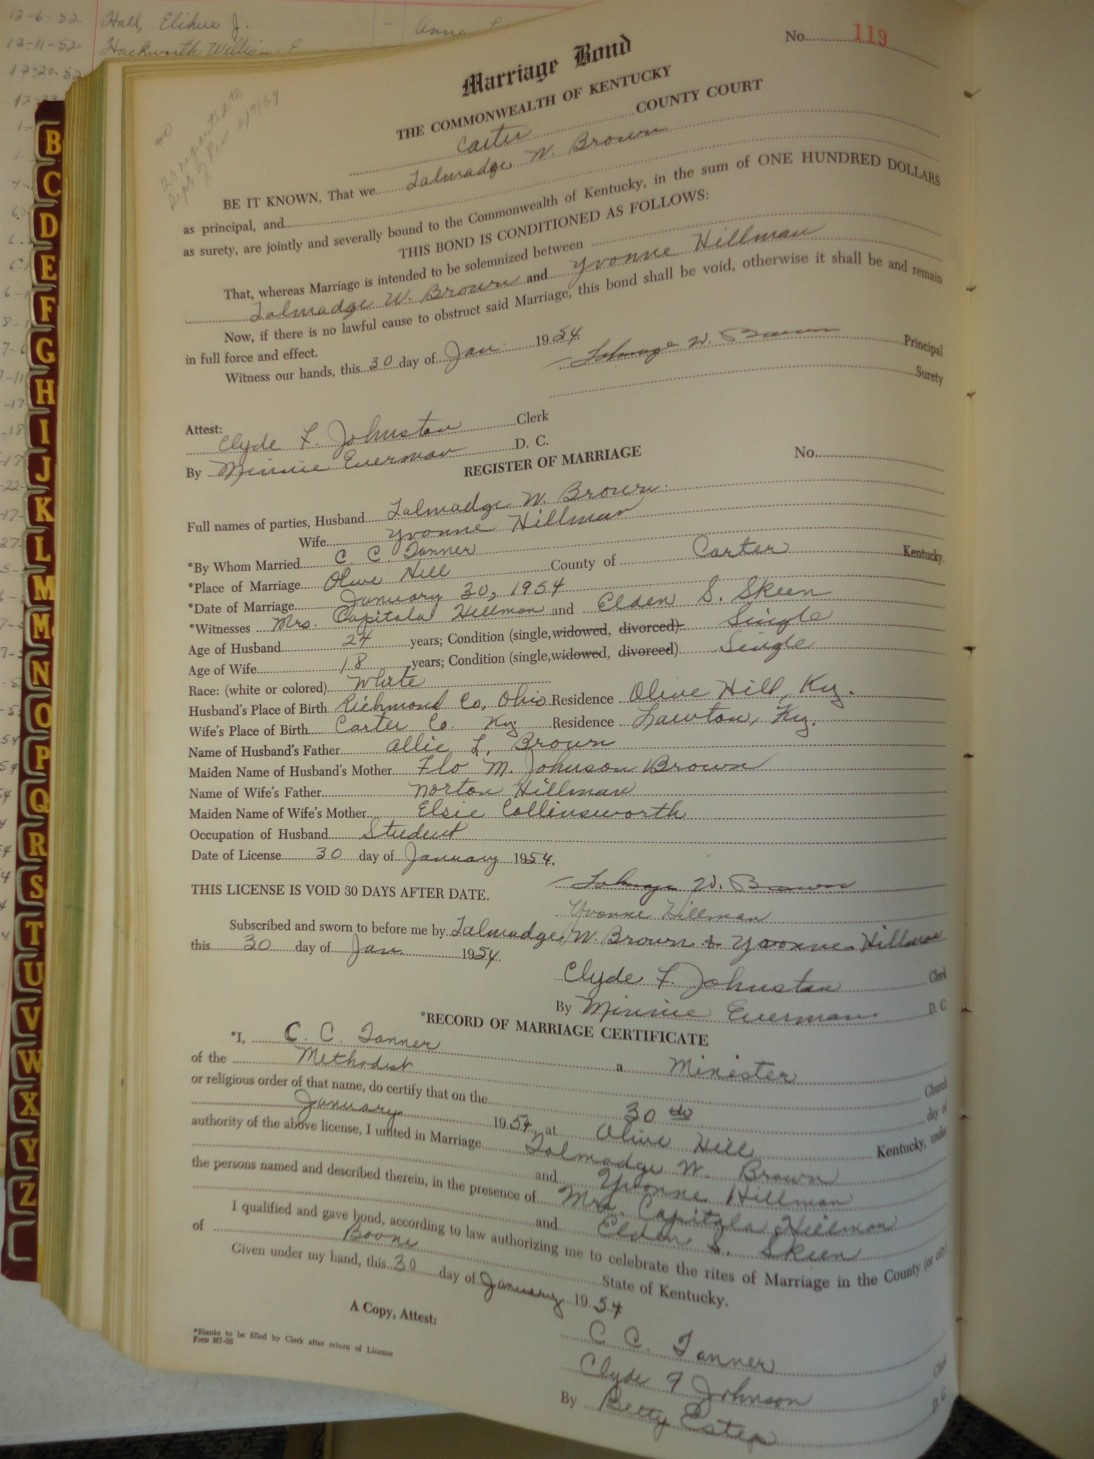 12-6-52 Hall, Elihue J. - Anna
12-11-52 Hackworth Willis
12-20-52
No. 119
Marriage Bond
THE COMMONWEALTH OF KENTUCKY
Carter COUNTY COURT
BE IT KNOWN, That we Talmadge W. Brown
as principal, and
as surety, are jointly and severally bound to the Commonwealth of Kentucky, in the sum of ONE HUNDRED DOLLARS
THIS BOND IS CONDITIONED AS FOLLOWS:
That, whereas Marriage is intended to be solemnized between
Talmadge W. Brown and Yvonne Hillman
Now, if there is no lawful cause to obstruct said Marriage, this bond shall be void, otherwise it shall be and remain
in full force and effect.
Witness our hands, this 30 day of Jan. 1954
Talmage W. Brown Principal
Surety
Attest:
Clyde F. Johnston Clerk
By Minnie Everman D. C.
REGISTER OF MARRIAGE No.
Full names of parties, Husband Talmadge W. Brown
Wife Yvonne Hillman
*By Whom Married C. C. Tanner
*Place of Marriage Olive Hill County of Carter Kentucky.
*Date of Marriage January 30, 1954
*Witnesses Mrs. Capitola Hillman and Elden S. Skeen
Age of Husband 24 years; Condition (single, widowed, divorced) Single
Age of Wife 18 years; Condition (single, widowed, divorced) Single
Race: (white or colored) White
Husband's Place of Birth Richmond Co, Ohio Residence Olive Hill, Ky.
Wife's Place of Birth Carter Co. Ky. Residence Lawton, Ky.
Name of Husband's Father Allie L. Brown
Maiden Name of Husband's Mother Flo M. Johnson Brown
Name of Wife's Father Norton Hillman
Maiden Name of Wife's Mother Elsie Collinsworth
Occupation of Husband Student
Date of License 30 day of January 1954.
THIS LICENSE IS VOID 30 DAYS AFTER DATE.
Talmage W. Brown
Yvonne Hillman
Subscribed and sworn to before me by Talmadge W. Brown & Yvonne Hillman
this 30 day of Jan. 1954
Clyde F. Johnston Clerk
By Minnie Everman D. C.
*RECORD OF MARRIAGE CERTIFICATE
*I, C. C. Tanner a Minister
of the Methodist Church
or religious order of that name, do certify that on the 30th day of
January 1954, at Olive Hill Kentucky, under
authority of the above license, I united in Marriage Talmadge W. Brown
and Yvonne Hillman
the persons named and described therein, in the presence of Mrs. Capitola Hillman
and Elden S. Skeen
I qualified and gave bond, according to law authorizing me to celebrate the rites of Marriage in the County (or city)
of Boone State of Kentucky.
Given under my hand, this 30 day of January 1954
C C. Tanner
A Copy, Attest:
Clyde F Johnson Clerk
By Betty Estep D. C.
*Blanks to be filled by Clerk after return of License
B
C
D
E
F
G
H
I
J
K
L
M
M
N
O
P
Q
R
S
T
U
V
W
X
Y
Z